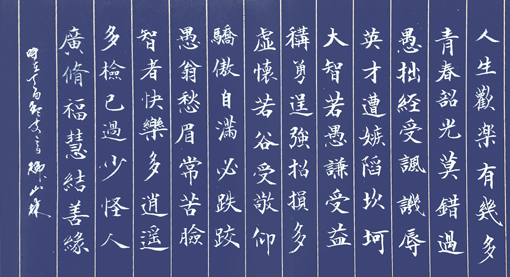 人生歡樂有幾多
青春韶光莫錯過
愚拙經受諷譏辱
英才遭嫉陷坎坷
大智若愚謙受益
稱勇逞強招損多
虛懷若谷受敬仰
驕傲自滿必跌跤
愚翁愁眉常苦臉
智者快樂多逍遥
多檢己過少怪人
廣脩福慧結善緣